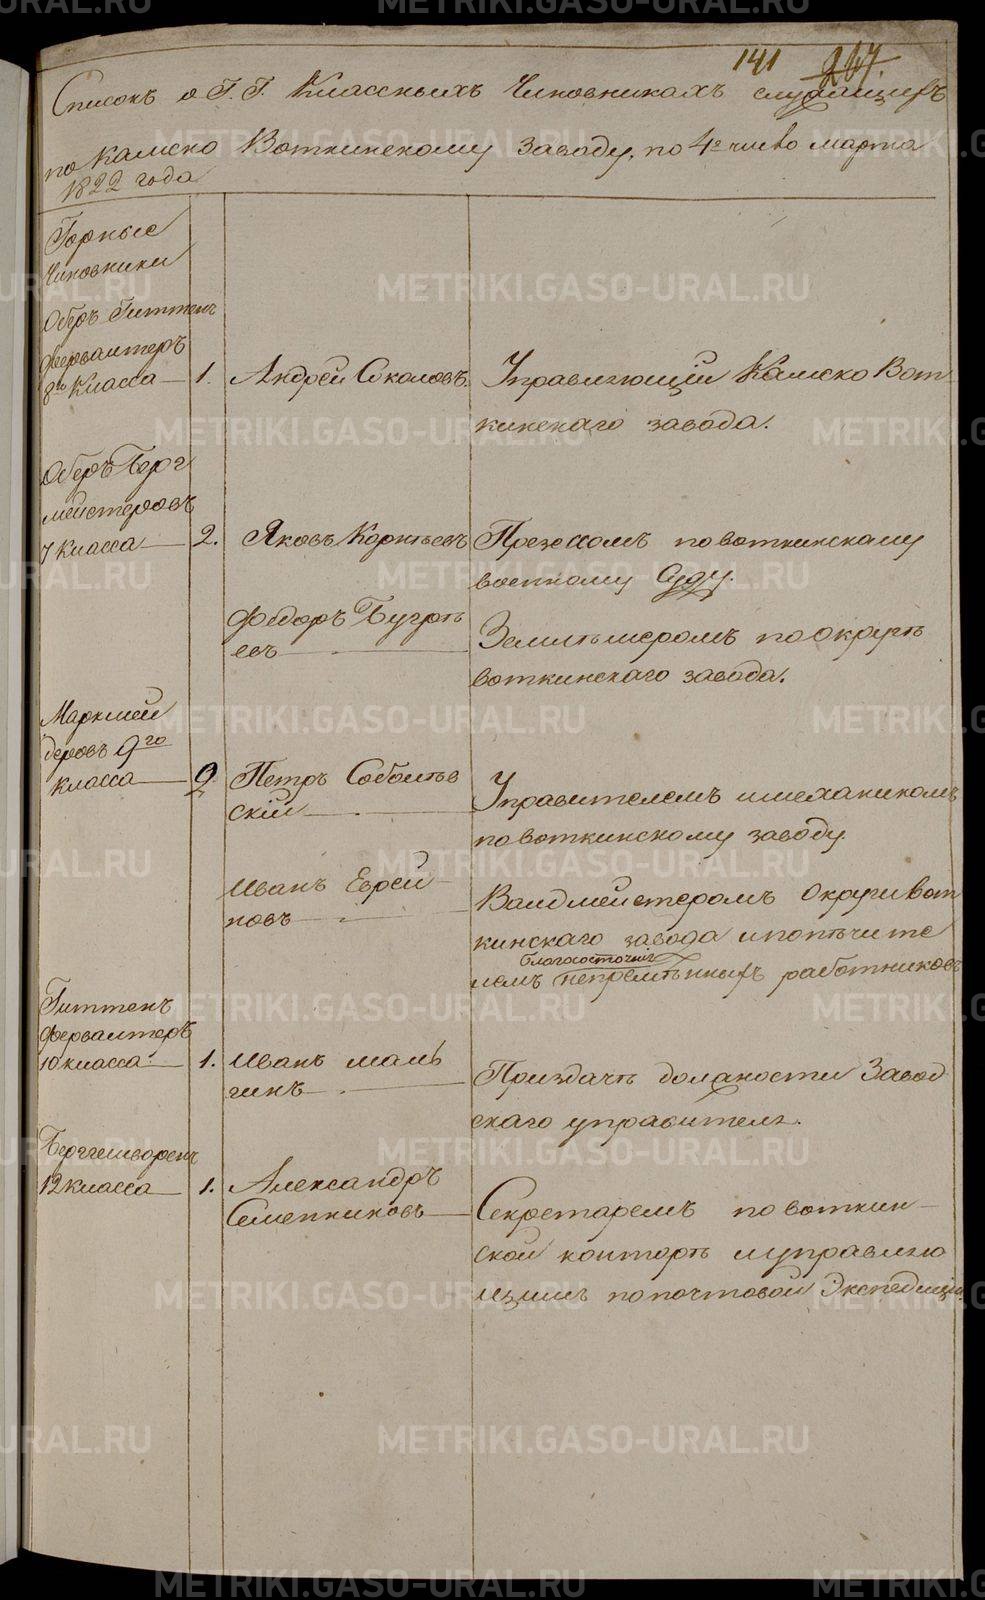 141 267.
Списокъ о Г. Г. Классныхъ Чиновникахъ служащихъ
по Камско Воткинскому заводу, по 4е число марта
1822 года
Горные
Чиновники
Оберъ Гиттенъ
ферваltеръ
8го Класса — 1. Андрей Соколовъ. Управляющій Камско Вот
кинскаго завода.
Оберъ Берг
мейстеровъ
7 Класса — 2. Яковъ Корнтьевъ Презессомъ по воткинскому
военному суду.
Федоръ Бугрѣ
евъ — Землѣмеромъ по округѣ
воткинскаго завода.
Маркшей
деровъ 9го
класса — 2 Петръ Соболѣв
скій — Управителемъ и механикомъ
по воткинскому заводу
Иванъ Еврей
новъ — Валдмейстеромъ округи Вот
кинскаго завода и попѣчите
благосостоянія
лемъ непремѣнныхъ работниковъ
Гиттенъ
ферваltеръ
10 класса — 1. Иванъ Мамы
гинъ — При здачѣ должности Завод
скаго управителя.
Берггешворенъ
12 класса — 1. Александръ
Семенниковъ — Секретаремъ по воткин-
ской конторѣ и управляю
щимъ по почтовой Экспедиціи.
METRIKI.GASO-URAL.RU